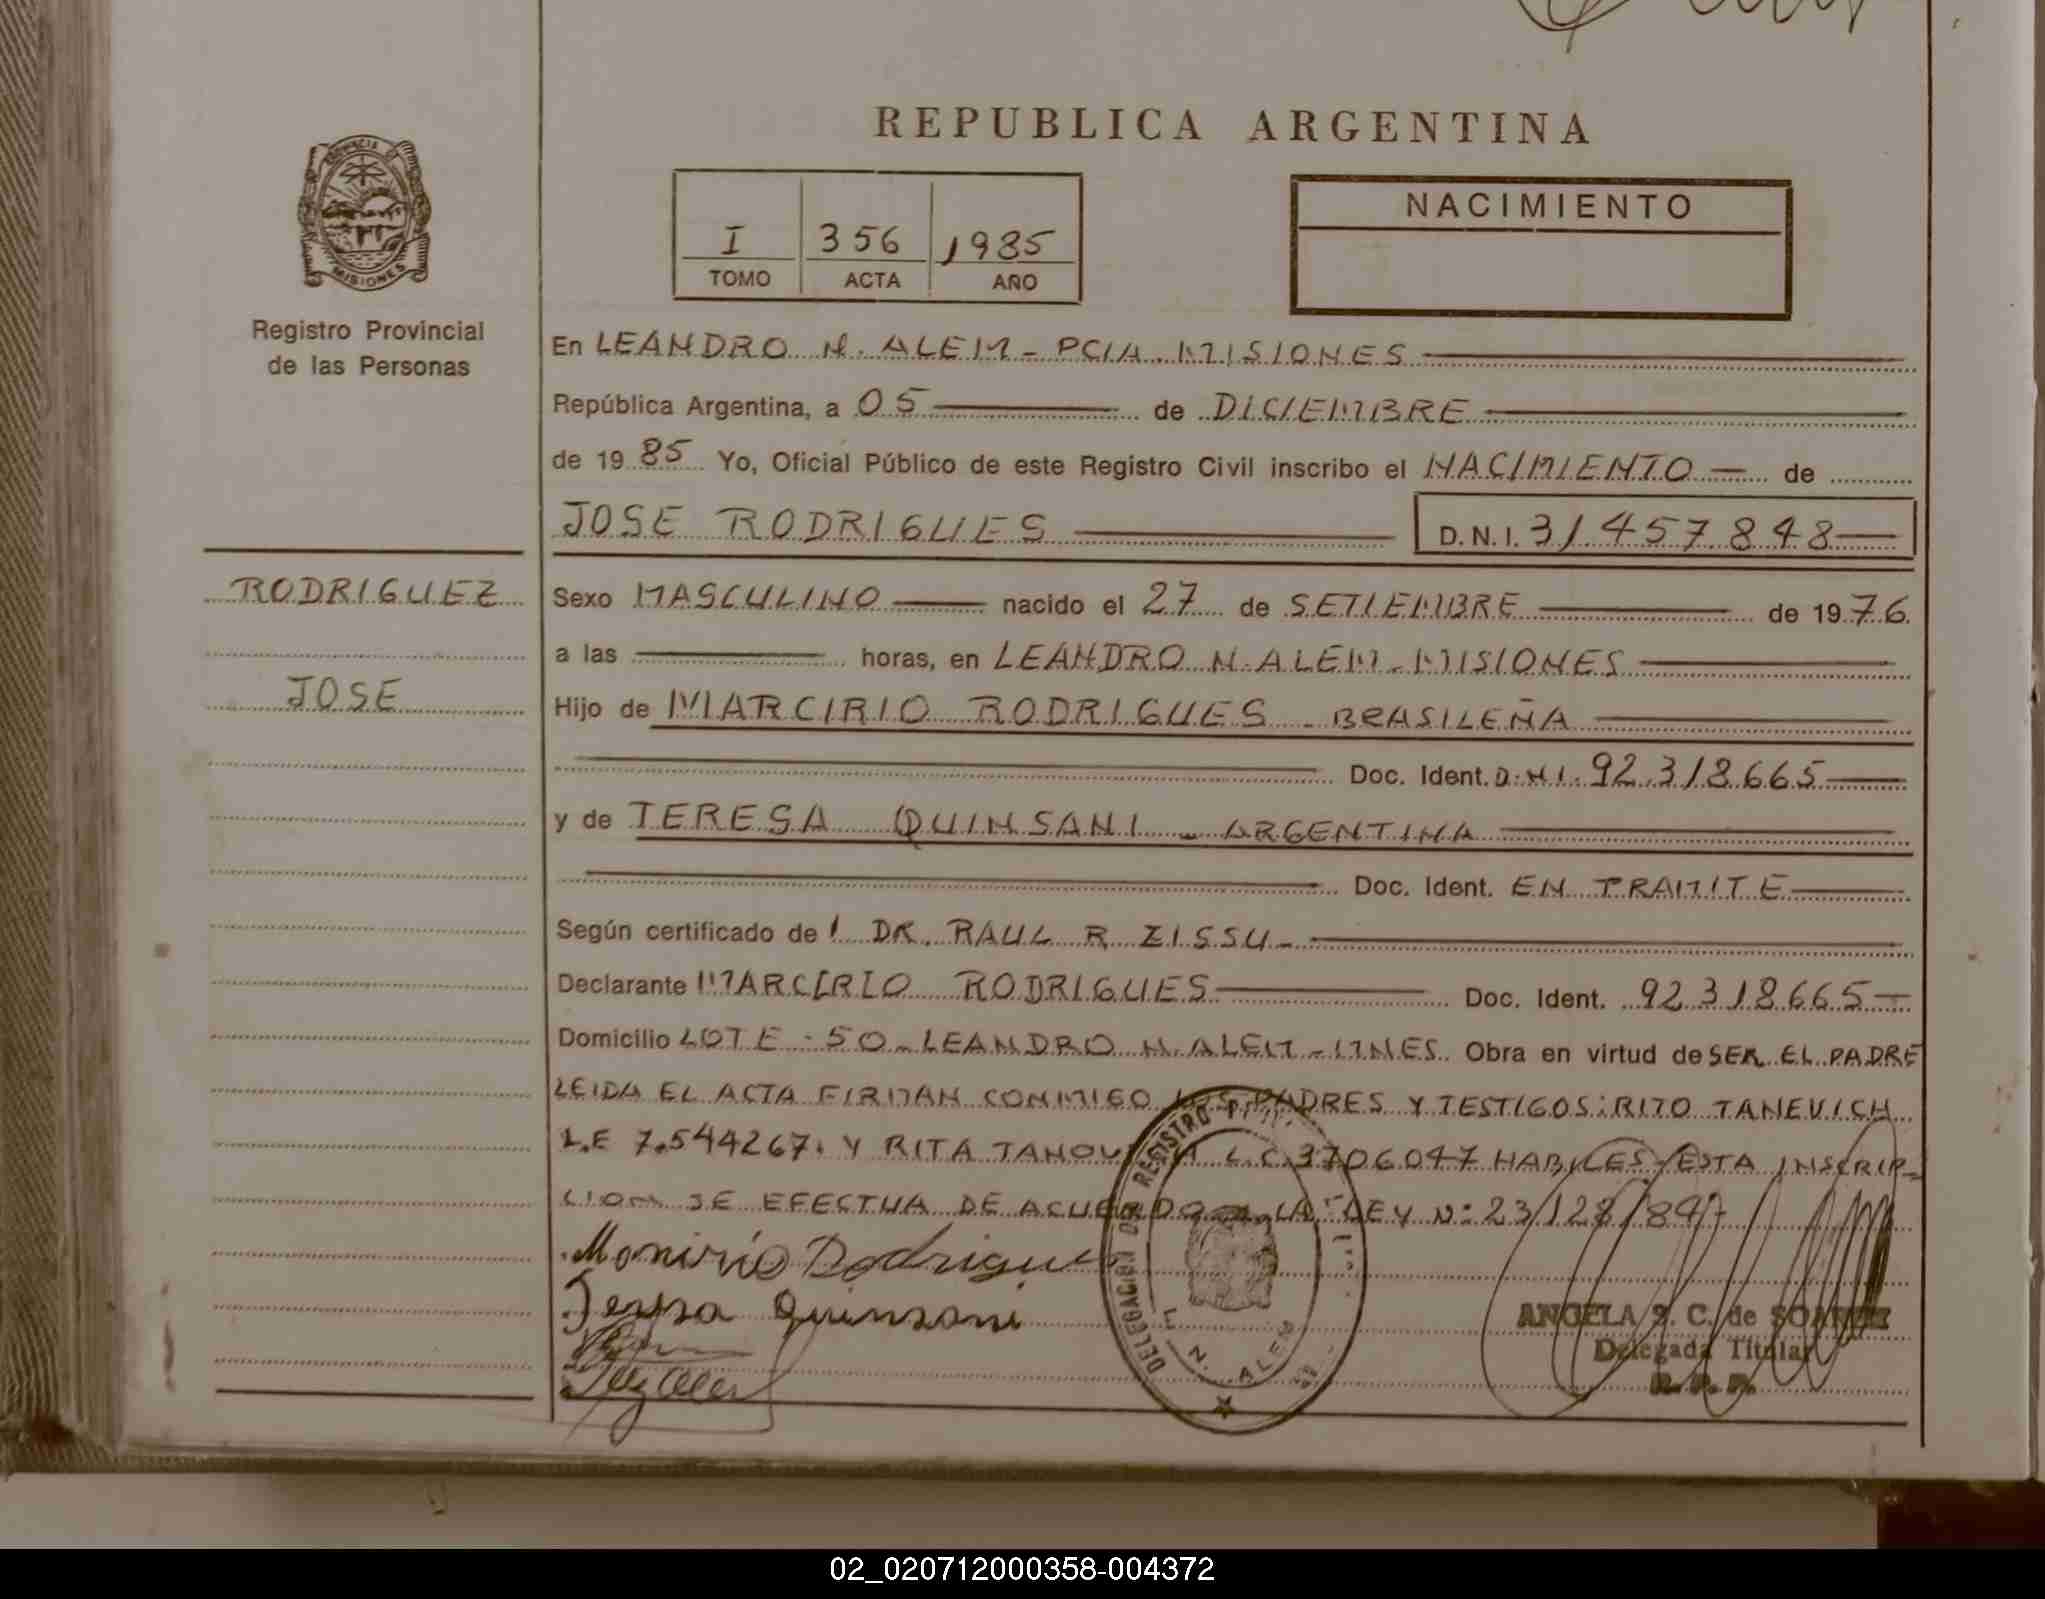 REPUBLICA ARGENTINA
PROVINCIA DE
MISIONES
Registro Provincial
de las Personas
I 356 1985
TOMO ACTA AÑO
NACIMIENTO
En LEANDRO N. ALEM - PCIA. MISIONES
República Argentina, a 05 de DICIEMBRE
de 1985 Yo, Oficial Público de este Registro Civil inscribo el NACIMIENTO de
JOSE RODRIGUES D.N.I. 31457848
RODRIGUEZ
JOSE
Sexo MASCULINO nacido el 27 de SETIEMBRE de 1976.
a las horas, en LEANDRO N. ALEM - MISIONES
Hijo de MARCIRIO RODRIGUES - BRASILEÑA
Doc. Ident. D.N.I. 92.318.665
y de TERESA QUINSANI - ARGENTINA
Doc. Ident. EN TRAMITE
Según certificado de DR. RAUL R ZISSU -
Declarante MARCIRIO RODRIGUES Doc. Ident. 92318665
Domicilio LOTE - 50 - LEANDRO N. ALEM - MNES. Obra en virtud de SER EL PADRE
LEIDA EL ACTA FIRMAN CONMIGO LOS PADRES Y TESTIGOS: RITO TANEVICH
L.E 7.544267. Y RITA L.C. 3706047 HABILES / ESTA INSCRIP-
CION SE EFECTUA DE ACUERDO A LA LEY N: 23/128/84
Rodrigues
Teresa Quinsani
DELEGACION DEL REGISTRO
L. N. ALEM
ANGELA S. C. de
Delegada Titular
R. P. P.
02_020712000358-004372